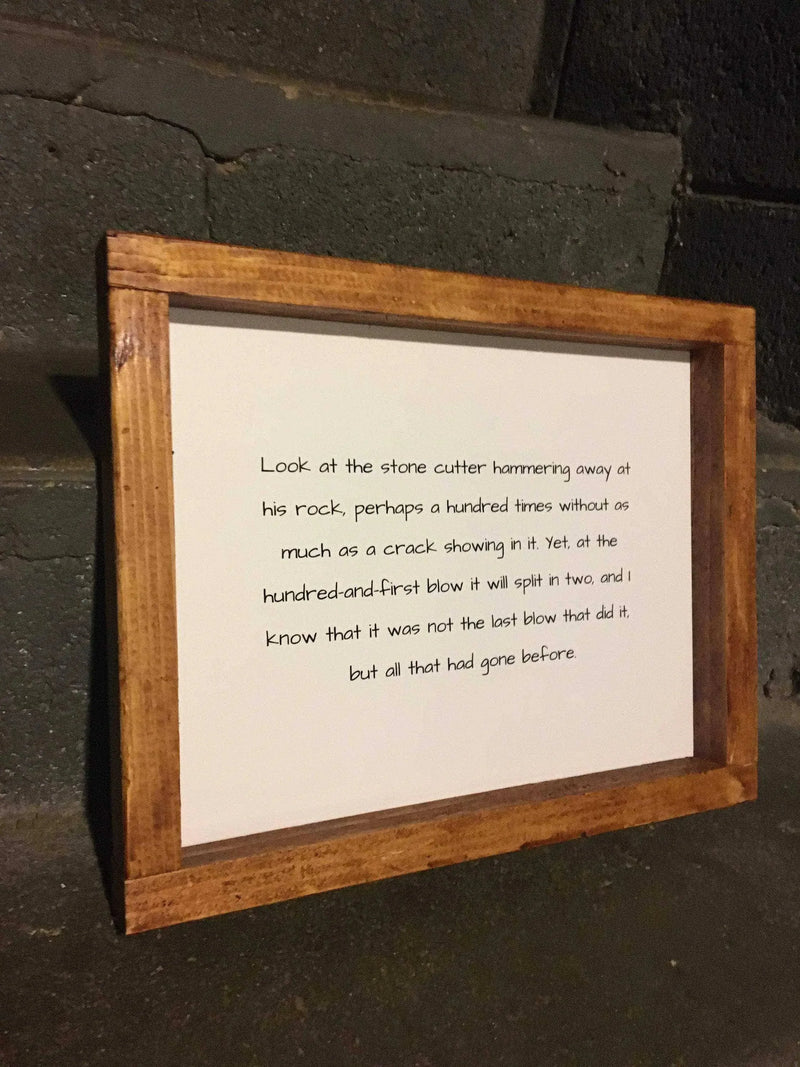 Look at the stone cutter hammering away at
his rock, perhaps a hundred times without as
much as a crack showing in it. Yet, at the
hundred-and-first blow it will split in two, and I
know that it was not the last blow that did it,
but all that had gone before.